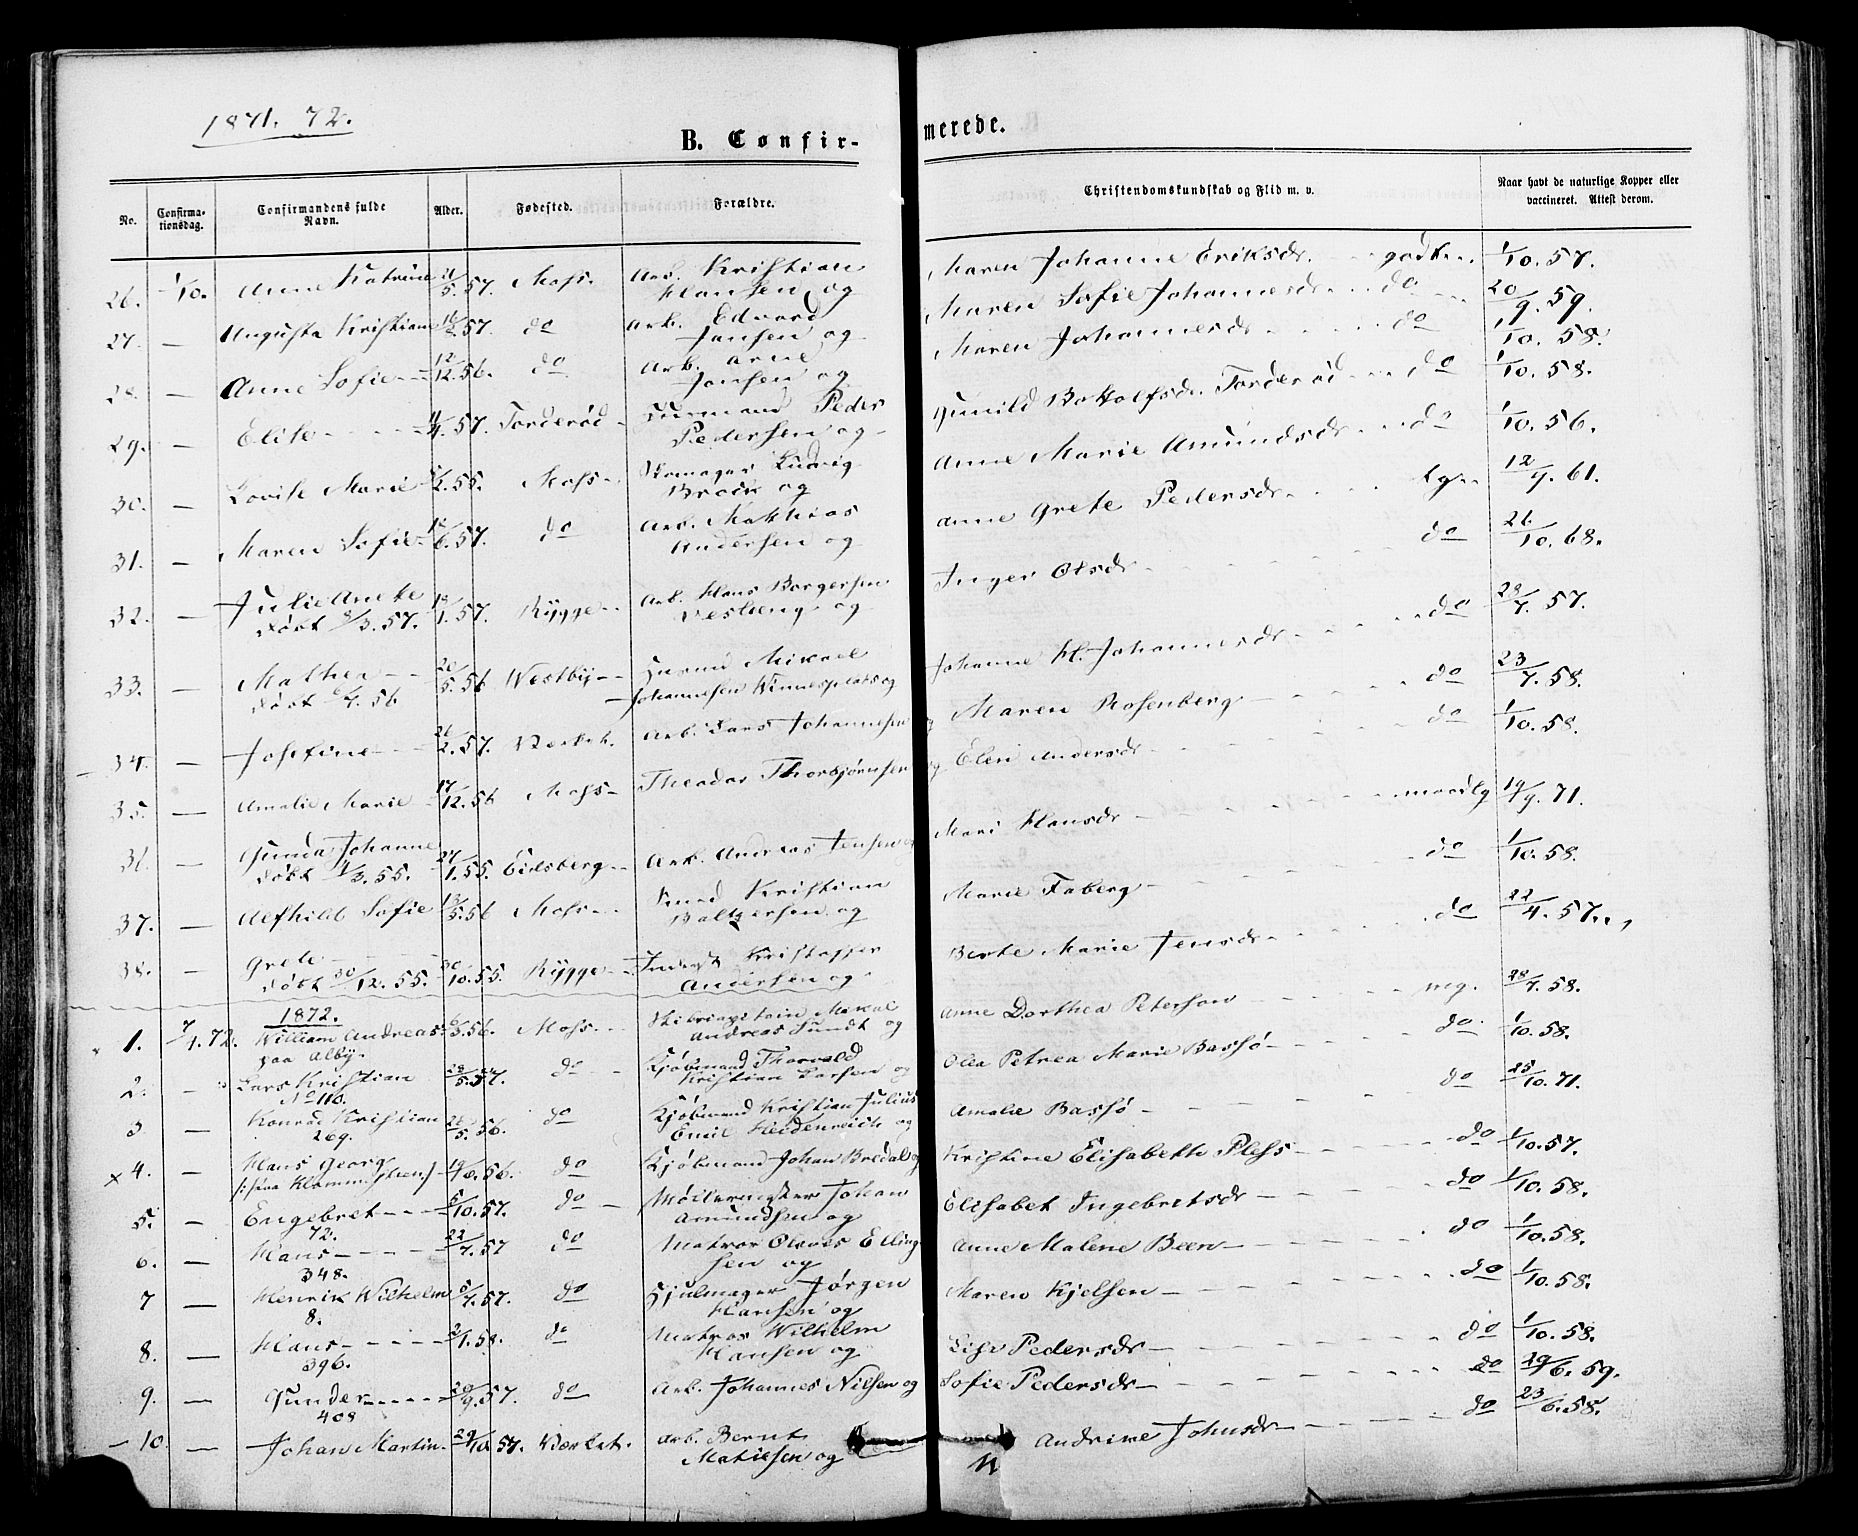 1871. 72.
B. Confir-
merede.
No.
Confirma-
tionsdag.
Confirmandens fulde
Navn.
Alder.
Fødested.
Forældre.
Christendomskundskab og Flid m. v.
Naar havt de naturlige Kopper eller
vaccineret. Attest derom.
26. 1/10. Anne Katrine 21/5.57. Moss. Arb. Kristian
Hansen og Maren Johanne Eriksdr. godt. 1/10. 57.
27. — Augusta Kristiane 57. do Arb. Edvard
Jansen og Maren Sofie Johannesdr. do 20/9. 59.
28. — Anne Sofie 12/12.56. do Arb. Arne
Jansen og Maren Johannesdr. do 1/10. 58.
29. — Elise 57. Torderød Peder
Pedersen og Gunild Torderød do 1/10. 58.
30. — Lovise Marie 55. Moss Skomager Ludvig
Brock og Anne Marie Amundsdr. do 1/10. 56.
31. — Maren Sofie 6.57. do Arb. Mathias
Andersen og Anne Grete Pedersdr. 12/9. 61.
32. — Julie Anete 1.57. Rygge Arb. Hans Borgersen
døbt 8/3.57. Vesteng og Inger Olsdr. do 26/10. 68.
33. — Mathea 20/5.56 Westby Mikael
døbt 56 Johannesen og Johanne M. Johannesdr. do 23/7. 57.
34. — Josefine 26/2.57. Arb. Lars Johannesen og Maren Rosenberg do 23/7. 58.
35. — Amalie Marie 17/12.56 Moss Theodor Thorbjørnsen og Elen Andersdr. do 1/10. 58.
36. — Gunda Johanne 27/1.55. Eidsberg Arb. Andreas Jensen og Mari Hansdr. maadlg 19/9. 71.
døbt 3.55.
37. — Alfhild Sofie 13/5.56 Moss Smed Kristian
Baltzersen og Marie Faberg do 1/10. 58.
38. — Grete 30/10.55. Rygge Inderst Kristoffer
døbt 30/12. 55. Andersen og Berte Marie Jensdr. do 22/4. 57.
1872.
1. 7/4.72. William Andreas 6/3.56. Moss
paa Alby. Andreas Sundt og Anne Dorthea Peterson mg. 28/7. 58.
2. — Lars Kristian 28/5.57. do Kjøbmand Thorvald
No 110. Kristian Larsen og Olea Petrea Marie Bassø do 1/10. 58.
3 — Konrad Kristian 26/5.56. do Kjøbmand Kristian Julius
269. Emil Heidenreich og Amalie Bassø do 25/10. 71.
× 4. — Hans Georg 56. do Kjøbmand Johan Bredal og Kristine Elisabeth Pless do 1/10. 57.
5. — Engebret 5/10.57. do Møllermester Johan
72. Amundsen og Elisabet Ingebretsdr do 1/10. 58.
6. — Hans 22/7.57 do Matros Olaves Elling-
348. sen og Anne Malene Been do 1/10. 58.
7 — Henrik Wilhelm 5/7.57. do Hjulmager Jørgen
8. Hansen og Maren Kjelsen do 1/10. 58.
8. — Hans 2/1.58. do Matros Wilhelm
396. Hansen og Lise Pedersdr do 1/10. 58.
9. — Gunder 20/9.57. do Arb. Johannes Nilsen og Sofie Pedersdr do 29/6. 59.
408
— 10. — Johan Martin 29/10.57. Værket. Arb. Bernt
Matiesen og Andrine Johnsdr do 23/6. 58.